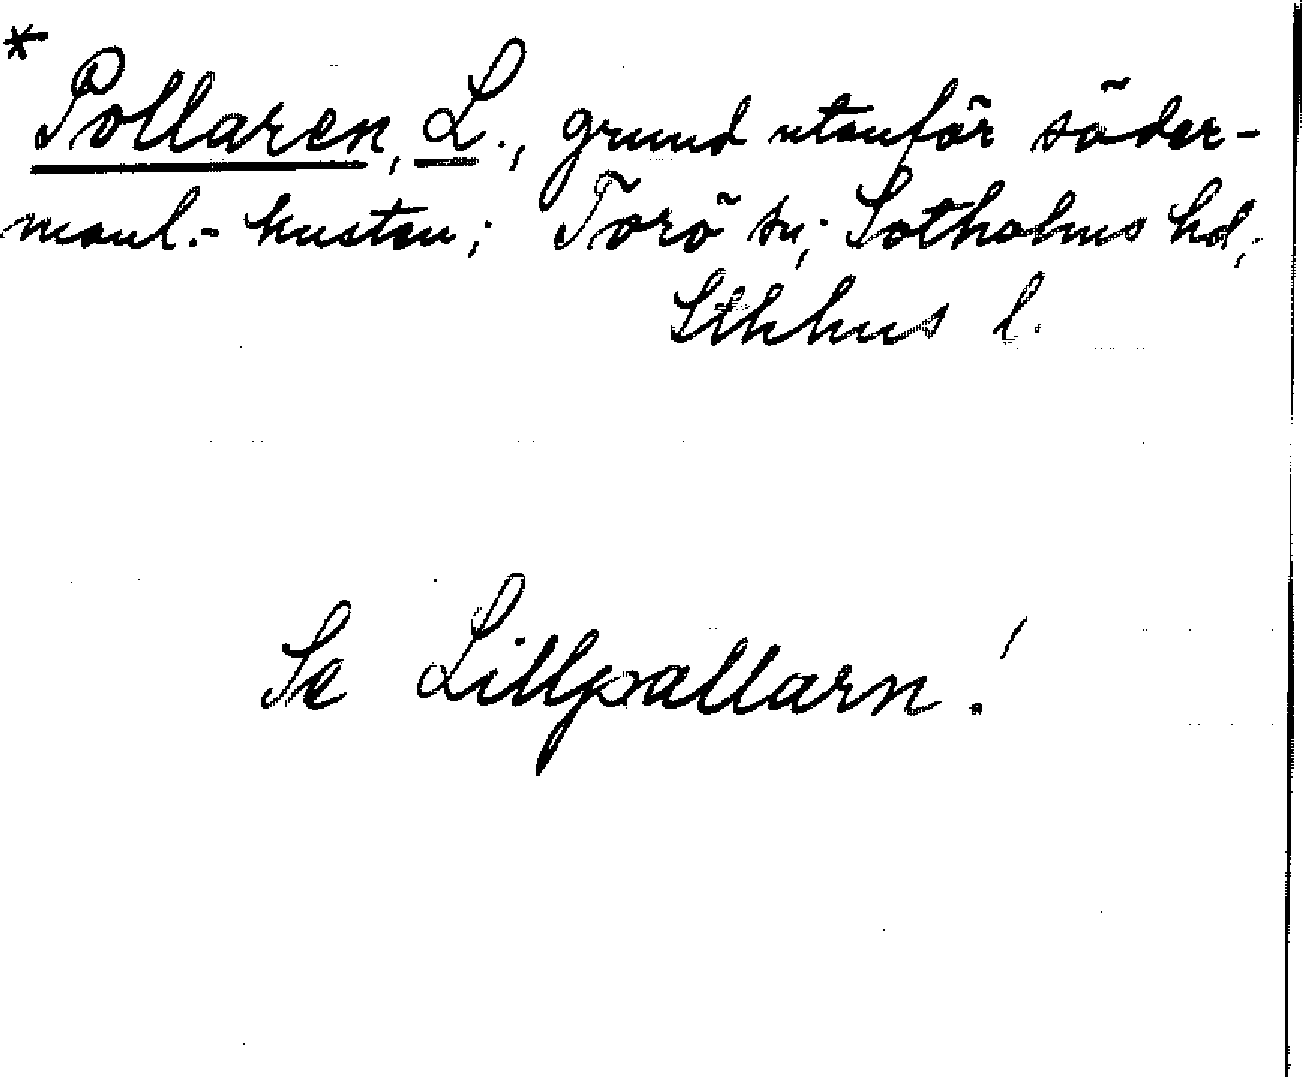 * Pollaren, L., grund utanför söder-
manl.- kusten; Torö sn; Sotholms hd,
Sthlms l.
Se Lillpallarn!